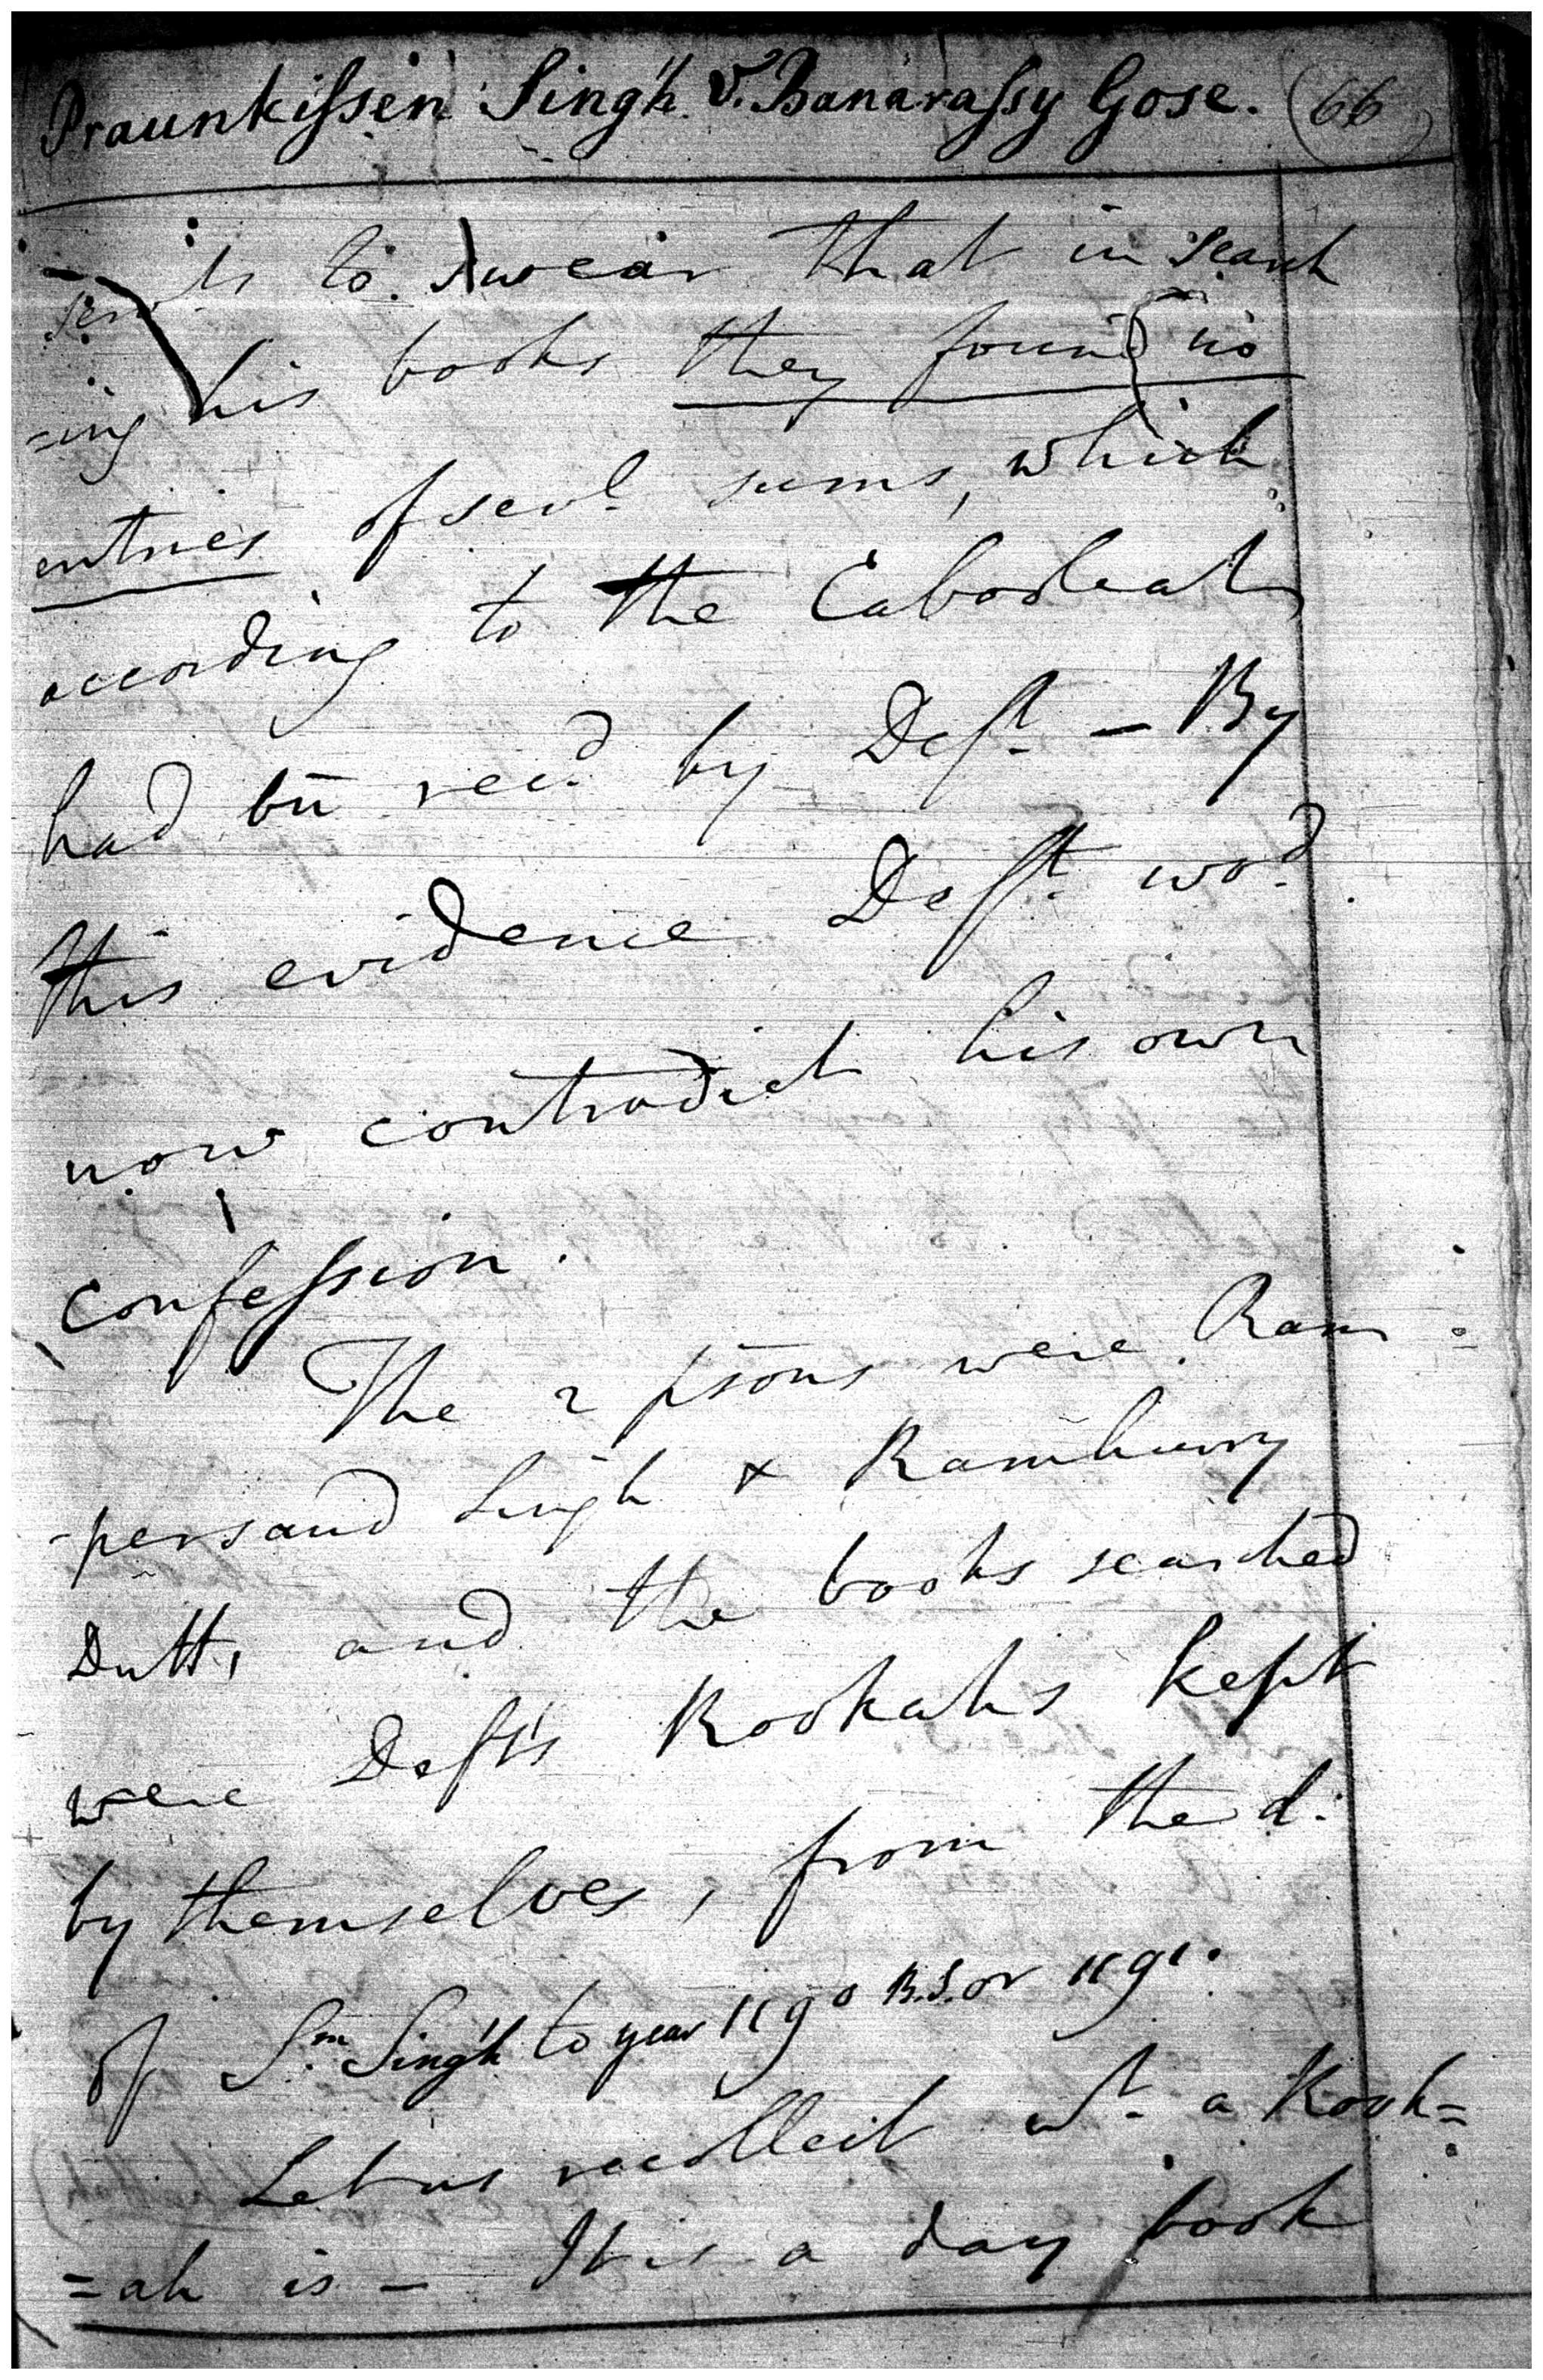 Praunkissen Singh v. Banarassy Gose. 66
to swear that in search
=ing his books they found no
entries of sevl. sums, which
according to the Cabooleats
had bn recd. by Deft. — By
this evidence Deft. wod.
now contradict his own
confession.
The 2 psons were Ram=
-persaud Singh & Ramhurry
Dutt, and the books searched
were Deft's Rookahs kept
by themselves, from the d.
of Sm. Singh to year 1190 B.S. or 1191.
Let us recollect wt. a Rook=
=ah is — It is a day book